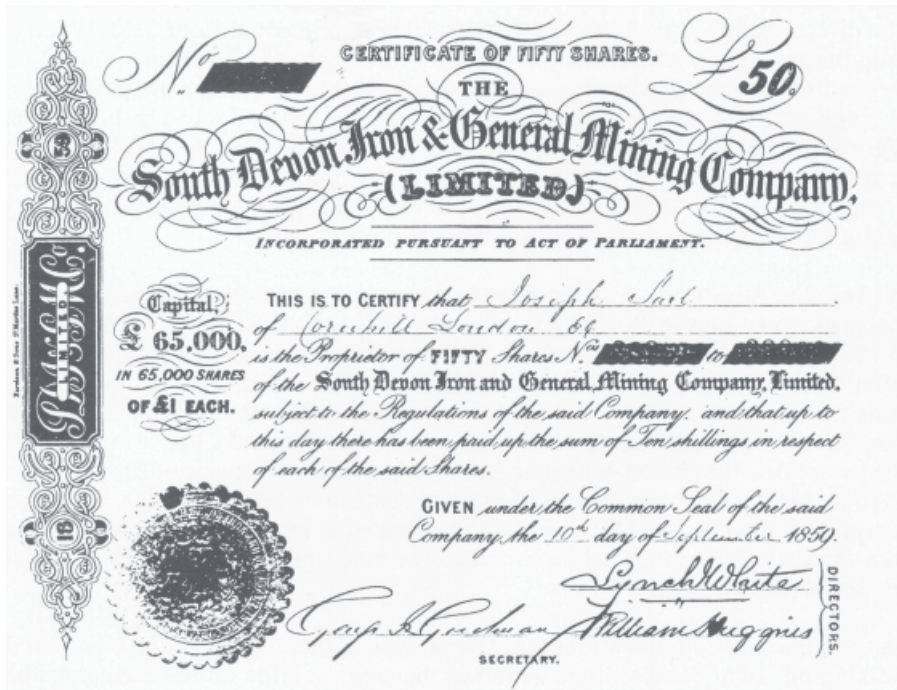 No
CERTIFICATE OF FIFTY SHARES.
£50.
THE
South Devon Iron & General Mining Company,
(LIMITED)
INCORPORATED PURSUANT TO ACT OF PARLIAMENT.
Capital,
£65.000.
IN 65,000 SHARES
OF £1 EACH.
THIS IS TO CERTIFY that Joseph
of Cornhill London EC
is the Proprietor of FIFTY Shares Nos to
of the South Devon Iron and General Mining Company, Limited.
subject to the Regulations of the said Company, and that up to
this day there has been paid up the sum of Ten shillings in respect
of each of the said Shares.
GIVEN under the Common Seal of the said
Company, the 10th day of September 1859.
Lynch White
William Huggins
DIRECTORS.
SECRETARY.
LIMITED